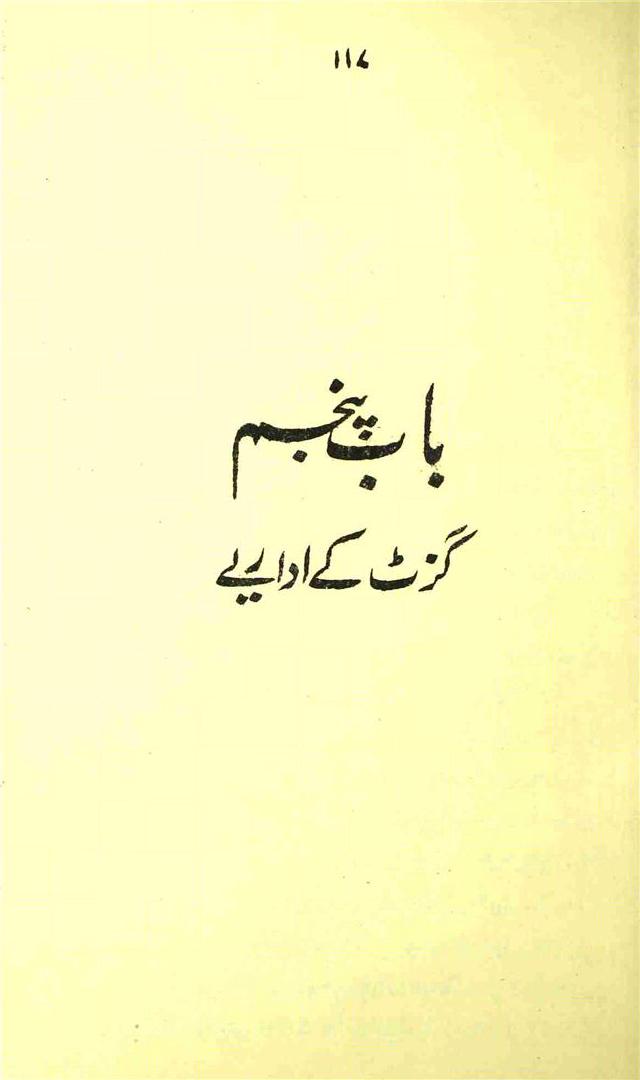 ۱۱۷
باب پنجم
گزٹ کے اداریے